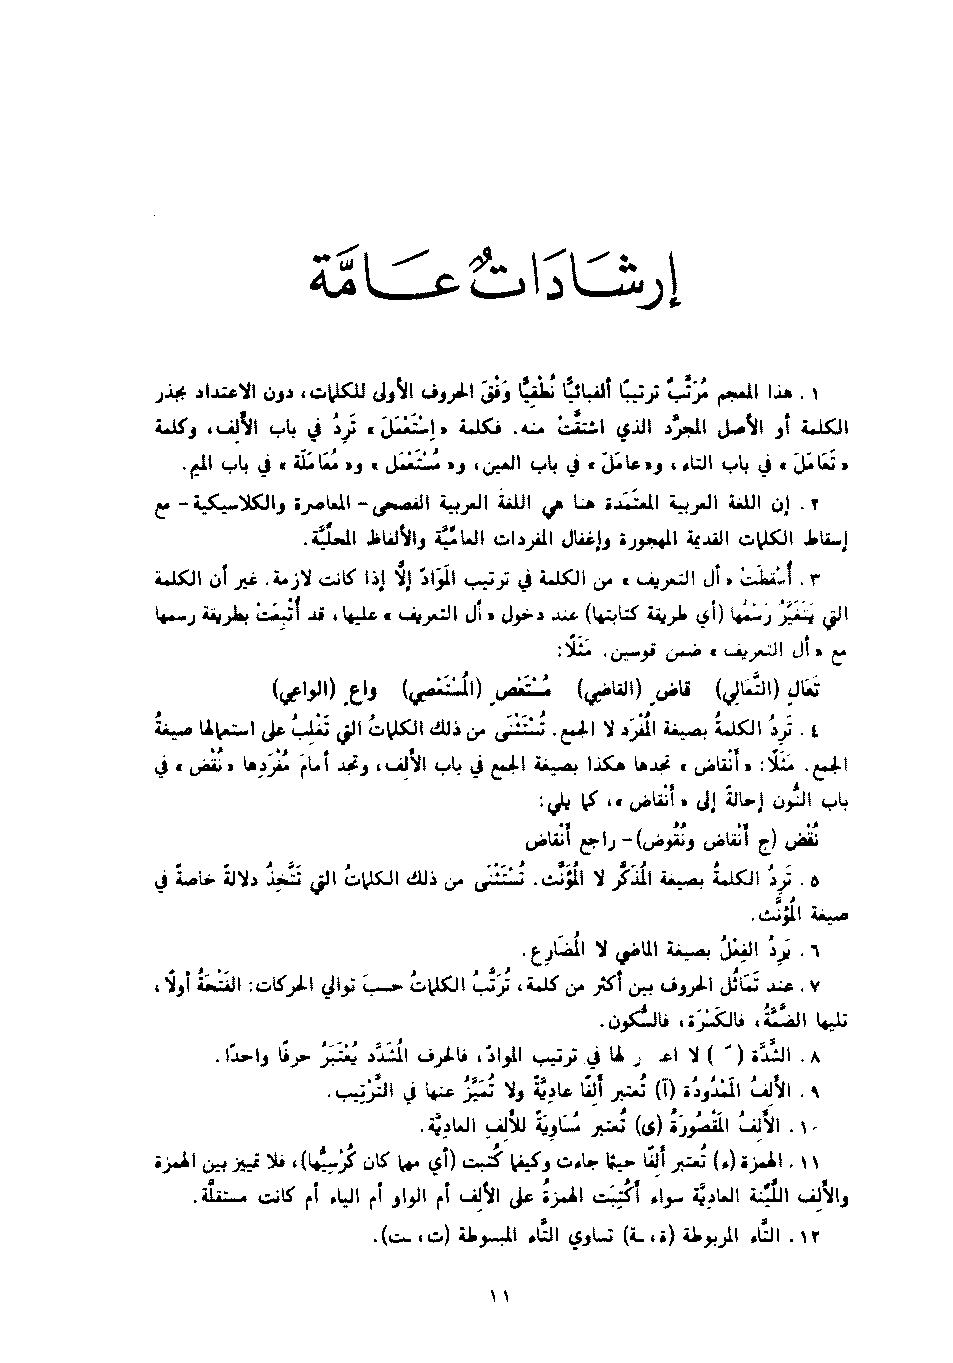 إرشَادَاتٌ عَامَّة
١. هذا المعجم مُرَتَّبٌ ترتيبًا ألفبائيًّا نُطْقِيًّا وَفْقَ الحروف الأولى للكلمات، دون الاعتداد بجذر
الكلمة أو الأصل المجرَّد الذي اشتقَّتْ منه. فكلمة «إِسْتَعْمَلَ» تَرِدُ في باب الألف، وكلمة
«تَعَامَلَ» في باب التاء، و«عامَلَ» في باب العين، و«مُسْتَعْمَل» و«مُعَامَلَة» في باب الميم.
٢. إن اللغة العربية المعتَمَدة هنا هي اللغة العربية الفصحى - المعاصرة والكلاسيكية - مع
إسقاط الكلمات القديمة المهجورة وإغفال المفردات العامِّيَّة والألفاظ المحلِّيَّة.
٣. أُسْقِطَتْ «أل التعريف» من الكلمة في ترتيب المَوَادّ إلَّا إذا كانت لازمة. غير أن الكلمة
التي يَتَغَيَّرُ رَسْمُها (أي طريقة كتابتها) عند دخول «أل التعريف» عليها، قد أُتْبِعَتْ بطريقة رسمها
مع «أل التعريف» ضمن قوسين. مَثَلًا:
تَعَالٍ (التَّعَالِي) قاضٍ (القَاضِي) مُسْتَعْصٍ (المُسْتَعْصِي) واعٍ (الواعِي)
٤. تَرِدُ الكلمةُ بصيغة المُفْرَد لا الجمع. تُسْتَثْنَى من ذلك الكلماتُ التي تَغْلِبُ على استعمالها صيغةُ
الجمع. مَثَلًا: «أَنْقاض» تجدها هكذا بصيغة الجمع في باب الألف، وتجد أمامَ مُفْرَدِها «نُقْض» في
باب النُّون إحالةً إلى «أَنْقاض»، كما يلي:
نُقْض (ج أَنْقاض ونُقُوض) - راجع أَنْقاض
٥. تَرِدُ الكلمةُ بصيغة المُذَكَّر لا المُؤَنَّث. تُسْتَثْنَى من ذلك الكلماتُ التي تَتَّخِذُ دلالةً خاصةً في
صيغة المُؤَنَّث.
٦. يَرِدُ الفِعْلُ بصيغة الماضي لا المُضَارِع.
٧. عند تَمَاثُل الحروف بين أكثر من كلمة، تُرَتَّبُ الكلماتُ حسبَ توالي الحركات: الفَتْحَةُ أولًا،
تليها الضَّمَّةُ، فالكَسْرَة، فالسُّكون.
٨. الشَّدَّة ( ّ ) لا لها في ترتيب الموادّ، فالحرف المُشَدَّد يُعْتَبَرُ حرفًا واحدًا.
٩. الألِفُ المَمْدُودَة (آ) تُعتبر ألِفًا عاديَّةً ولا تُمَيَّزُ عنها في التَّرْتِيب.
١٠. الألِفُ المَقْصُورَةُ (ى) تُعتبر مُسَاوِيَةً للألِفِ العاديَّة.
١١. الهمزة (ء) تُعتبر ألِفًا حيثما جاءت وكيفما كُتبت (أي مهما كان كُرْسِيُّها)، فلا تمييز بين الهمزة
والألِف اللَّيِّنة العاديَّة سواء أَكُتِبَت الهمزةُ على الألف أم الواو أم الياء أم كانت مستقلَّة.
١٢. التَّاء المربوطة (ة، ـة) تساوي التَّاء المبسوطة (ت، ـت).
١١